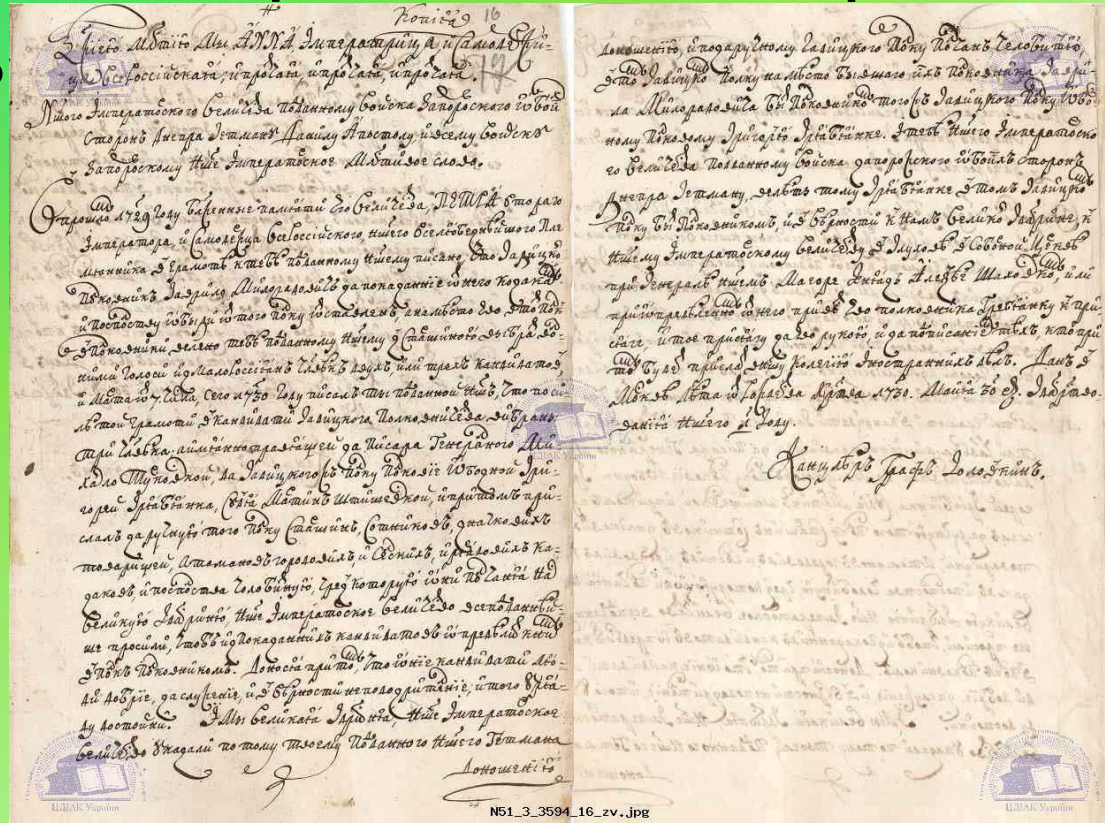 Копія
16
Бжіею Млтію Мы АННА Императрица и Самодержи-
ца Всероссійская, и протчая, и протчая, и протчая.
Ншого Императорского Величества подданному Войска Запорозского обоих
сторонъ Днепра Гетману Данилу Апостолу, и всему Войску
Запорозскому Нше Императорское Млтивое слово.
прошлого 1729 году блаженные памяти Его Величества, ПЕТРА второго
Императора, и Самодержца Всероссійского, ншего вселюбезнейшого Пле-
мянника в грамоте к тебѣ подданному ншему писано, что Гадяцкой
Полковникъ Гаврило Милорадовичъ
и посполству обиды от того полку отставленъ, а на мѣсто его в тотъ полкъ
в полковники, велено тебѣ подданному ншему с старшиною выбрать
ними голоси из малороссіянъ члвкъ двухъ или трехъ кандидатовъ
и Марта 7 числа, сего 1730 году писалъ ты подданной ншъ, что по си-
лѣ той грамоти в кандидати Гадяцкого Полковничества, выбрано
три члвка, а имянно правящей да писара Генералного Ми-
хайло Турковской, да Гадяцкого полку полковіе обозной Гри-
горей Грабянка, судя Мартинъ Штишевской, и притомъ при-
слалъ за рукую того полку старшинъ, сотниковъ, значковихъ
товарищей, атамановъ городовихъ, и селскихъ, и рядовихъ ка-
заковъ, и посполства челобитную, чрез которую они просятъ на
великую Гдрню, нше Императорское величество всеподданнѣй-
ше просили, чтобъ изпоказаннихъ кандидатовъ опредѣлить
в полкъ полковникомъ. Доносят притомъ, что оніе кандидати лю-
ди добріе, заслужоніе, и в вѣрности неподозрителніе, и того уря-
ду достойни. И Мы Великая Гдрня, Нше Императорское
величество указали по тому твоему подданного ншего Гетмана
доношению
доношению, и по заручному Гадяцкого полку Полчанъ челобитю,
в томъ Гадяцкомъ полку на мѣсто бывшаго ихъ полковника Гаври-
ла Милорадовича быть полковникомъ того Гадяцкого полку обоз-
ному полковому Григорію Грабянке. И тебѣ ншего Императорско-
го величества подданному войска запорозского обоихъ сторонъ
Днепра Гетману, велѣть тому Грабянке в томъ Гадяцкомъ
полку быть полковникомъ, и в вѣрности к намъ великой Гдрне, к
ншему Императорскому величеству в Глухове в соборной церквѣ
при Генералѣ ншемъ Маеоре Князѣ Алексѣе Шаховскомъ, или
при опредѣленномъ от него привесть его полковника Грабянку к при-
сяге, и тое присягу за его рукою, и за подписаніемъ тѣхъ, кто при
том будетъ прислать в ншу Колегію Иностраннихъ дѣлъ. Данъ в
Москвѣ лѣта от Рождества Христова 1730. Маія 30 д. Гдрство-
ванія Ншего 1 году.
Канцлеръ Графъ Головкинъ.
ЦДІАК України
ЦДІАК України
ЦДІАК України
N51_3_3594_16_zv.jpg